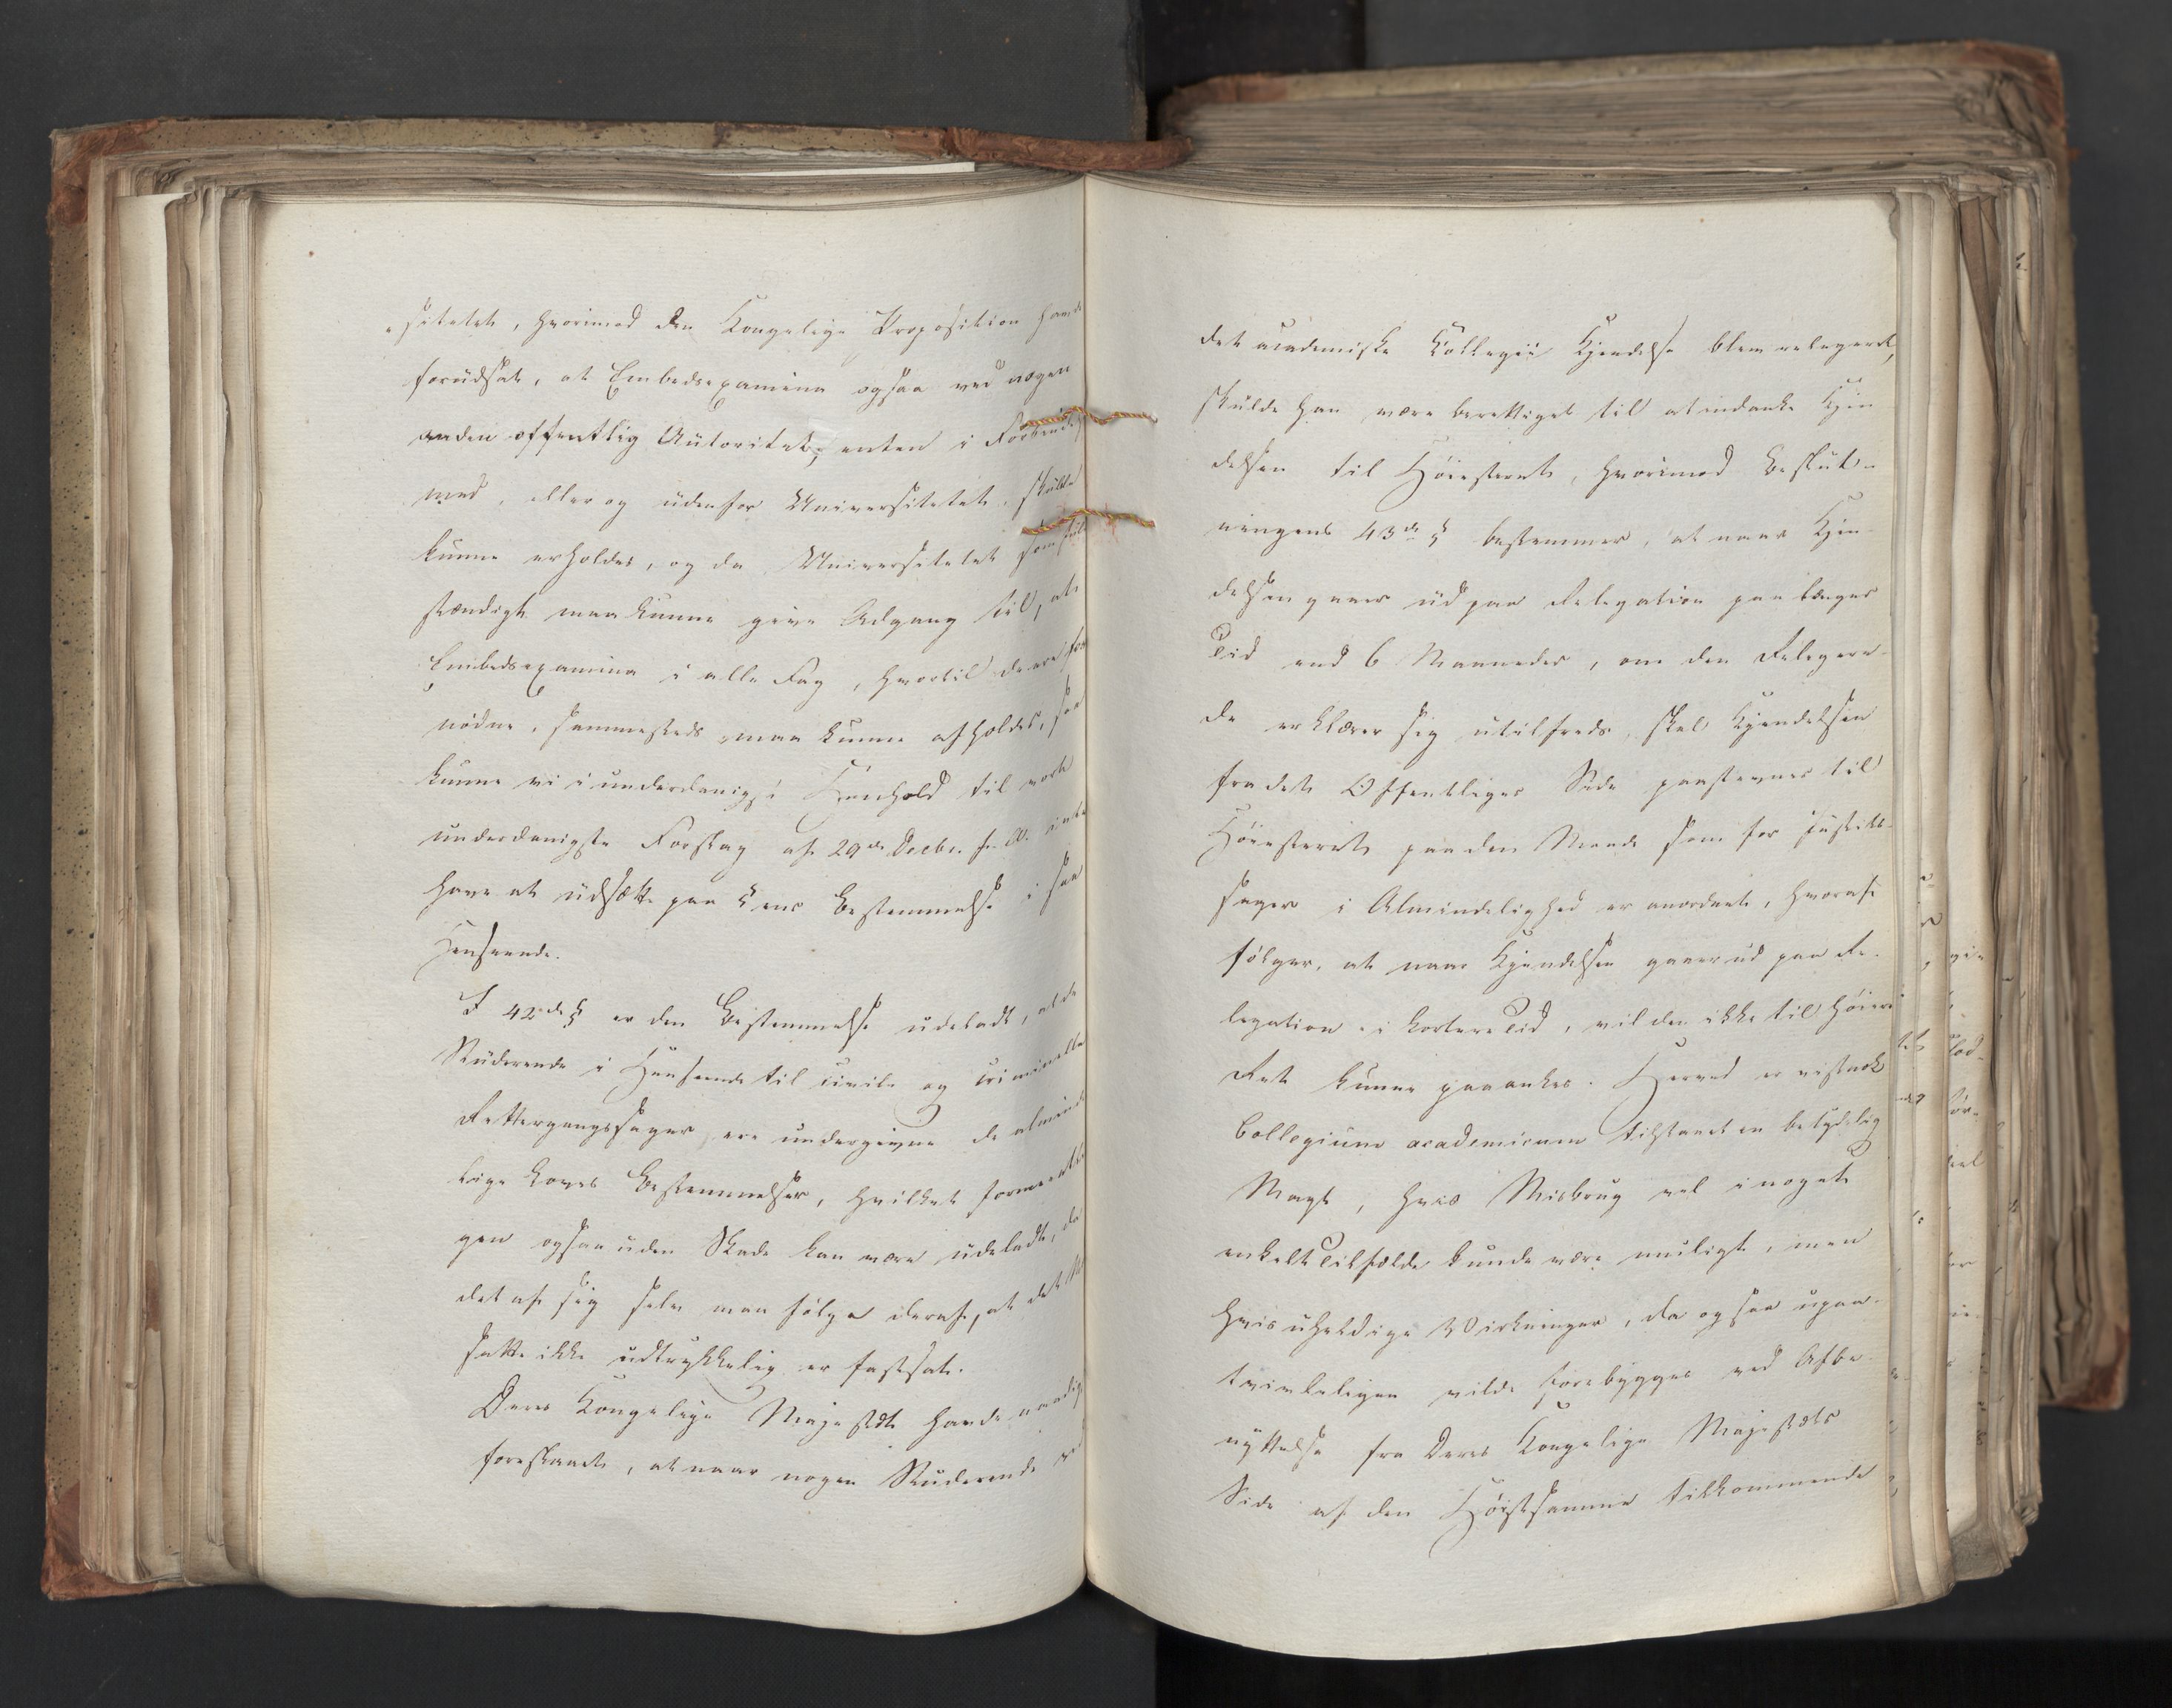 sitetet, hvorimod den Kongelige Proposition havde
forudsat, at Embedsexamina ogsaa ved nogen
anden offentlig Autoritet, enten i Forbindelse
med, eller og udenfor Universitetet, skulde
kunne erholdes, og da Universitetet
stændigt maa kunne give Adgang til, at
Embedsexamina i alle Fag, hvortil de ere for
nødne, sammesteds maa kunne afholdes, saa
kunne vi i underdanigst Henhold til vort
underdanigste Forslag af 29de Decbr. f. A. intet
have at udsætte paa §ens Bestemmelse i saa
Henseende.
I 42de § er den Bestemmelse udeladt, at de
Studerende i Henseende til civile og criminelle
Rettergangssager ere undergivne de alminde
lige Loves Bestemmelser, hvilket formeentli
gen ogsaa uden Skade kan være udeladt, da
det af sig selv maa følge deraf, at det
satte ikke udtrykkelig er fastsat.
Deres Kongelige Majestæt havde naadigst
foreslaaet, at naar nogen Studerende ved
det academiske Collegii Kjendelse blev relegeret,
skulde han være berettiget til at indanke Kjen
delsen til Høiesteret, hvorimod Beslut-
ningens 43de § bestemmer, at naar Kjen-
delsen gaaer ud paa Relegation paa længer
Tid end 6 Maaneder, om den Relegere-
de erklærer sig utilfreds, skal Kjendelsen
fra det Offentliges Side paastevnes til
Høiesteret paa den Maade som for Justits-
sager i Almindelighed er anordnet, hvoraf
følger, at naar Kjendelsen gaaer ud paa Re-
legation i kortere Tid, vil den ikke til høiere
Ret kunne paaankes. Herved er vistnok
Collegium academicum tilstaaet en betydelig
Magt, hvis Misbrug vel i noget
enkelt Tilfælde kunde være muligt, men
hvis uheldige Virkninger, da ogsaa upaa-
tvivleligen vilde forebygges ved Afbe-
nyttelse fra Deres Kongelige Majestæts
Side af den Høistsamme tilkommende